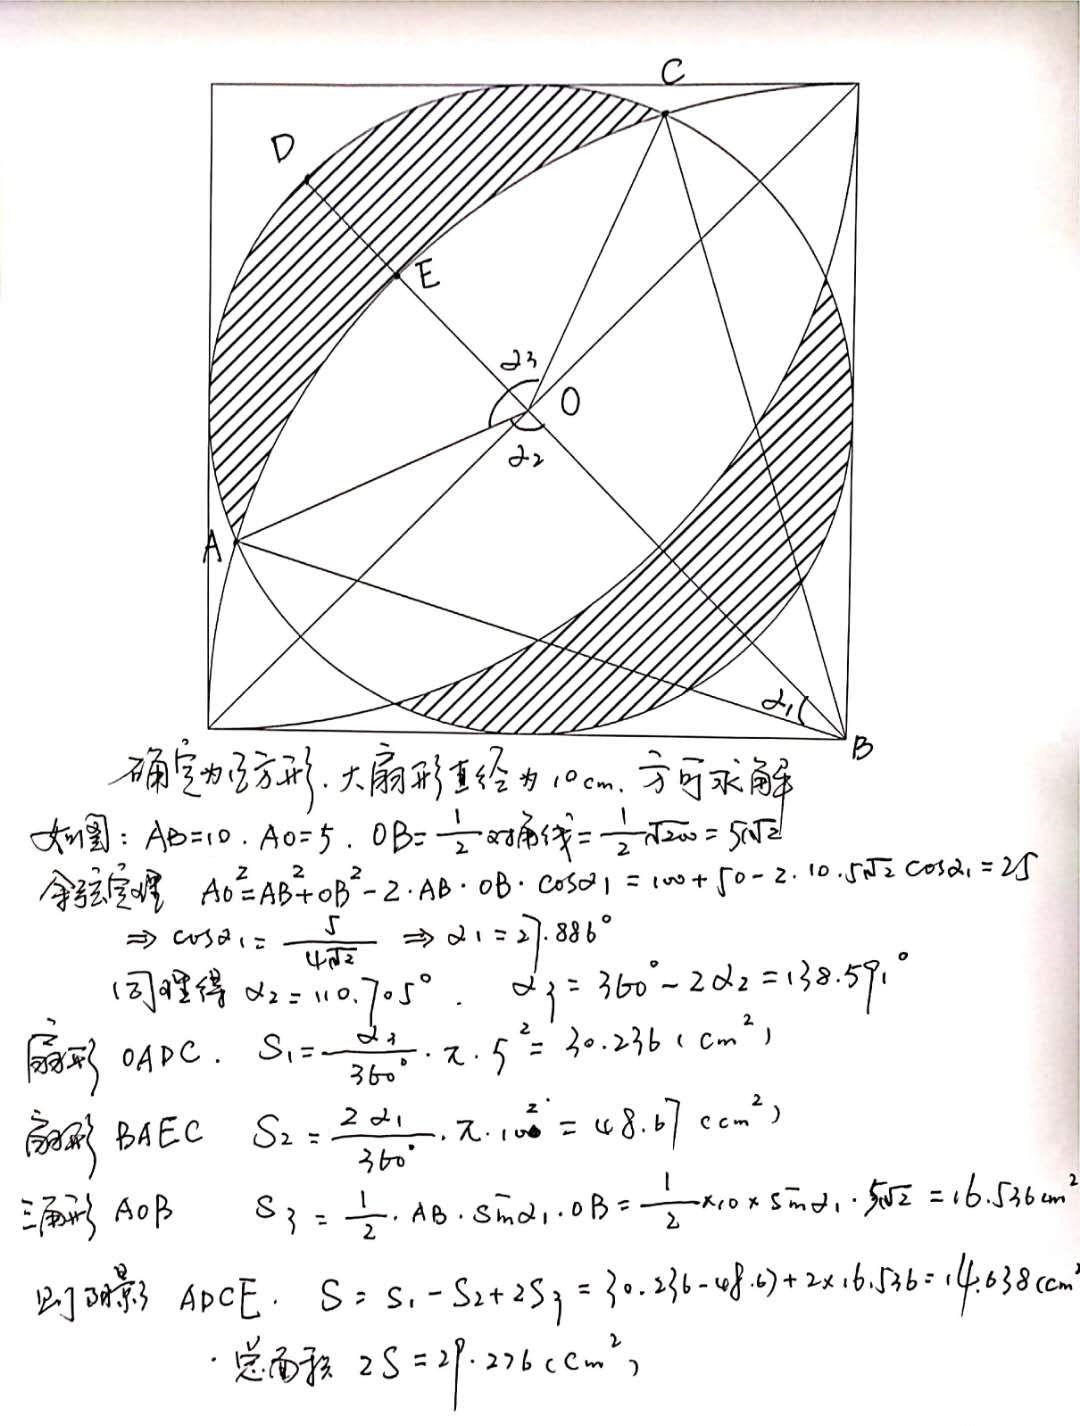 C
D
E
α3
O
α2
A
α1
B
确定为正方形.大扇形直径为10cm.方可求解
如图: AB=10. AO=5. OB=1/2对角线=1/2√200=5√2
余弦定理 AO²=AB²+OB²-2·AB·OB·cosα1=100+50-2·10·5√2cosα1=25
⇒ cosα1=5/4√2 ⇒ α1=27.886°
同理得 α2=110.705°. α3=360°-2α2=138.591°
扇形 OADC. S1=α3/360°·π·5²=30.236(cm²)
扇形 BAEC S2=2α1/360°·π·10²=48.67(cm²)
三角形 AOB S3=1/2·AB·sinα1·OB=1/2×10×sinα1·5√2=16.536cm²
则阴影 ADCE. S=S1-S2+2S3=30.236-48.67+2×16.536=14.638(cm²
·总面积 2S=29.276(cm²)